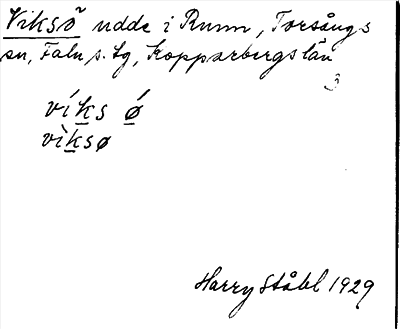 Viksö udde i Runn, Torsångs
sn, Falu s. tg, Kopparbergs län
3
víks ǿ
vìksø
Harry Ståhl 1929